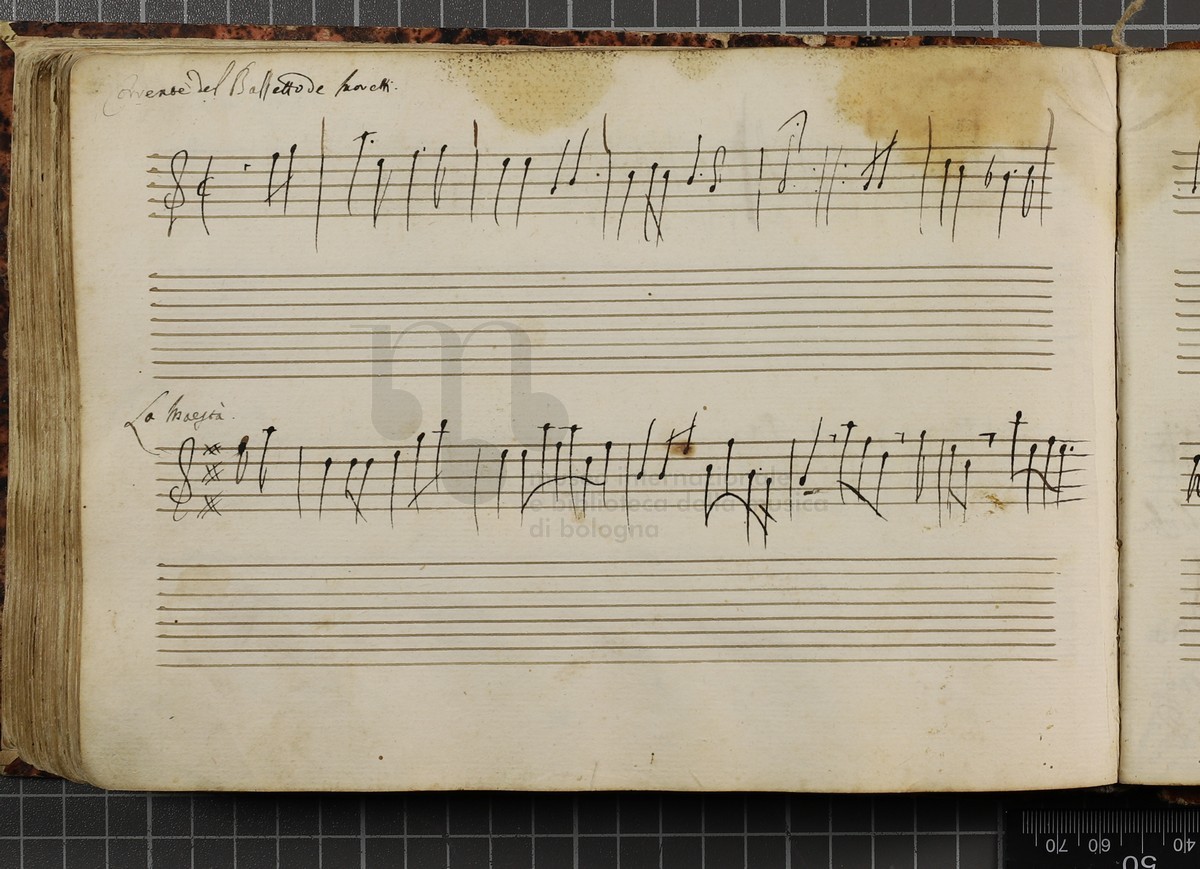 Corrente del Balletto de
La Maestà.
museo internazionale
e biblioteca della musica
di bologna
70 60 50 40